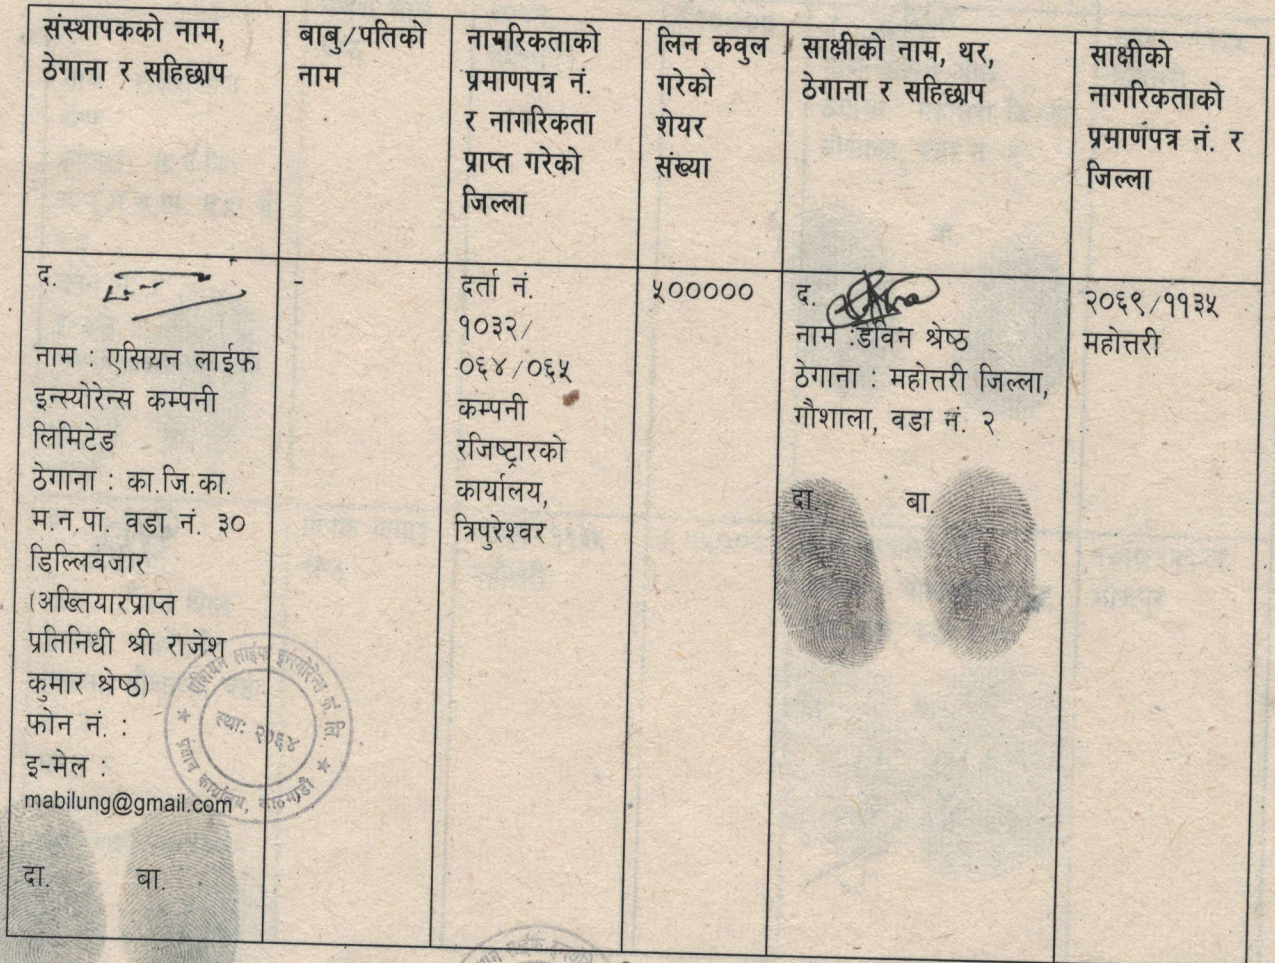 संस्थापकको नाम,
ठेगाना र सहिछाप
बाबु/पतिको
नाम
नागरिकताको
प्रमाणपत्र नं.
र नागरिकता
प्राप्त गरेको
जिल्ला
लिन कवुल
गरेको
शेयर
संख्या
साक्षीको नाम, थर,
ठेगाना र सहिछाप
साक्षीको
नागरिकताको
प्रमाणपत्र नं. र
जिल्ला
द.
नाम : एसियन लाईफ
इन्स्योरेन्स कम्पनी
लिमिटेड
ठेगाना : का.जि.का.
म.न.पा. वडा नं. ३०
डिल्लिवजार
(अख्तियारप्राप्त
प्रतिनिधी श्री राजेश
कुमार श्रेष्ठ)
फोन नं. :
इ-मेल :
mabilung@gmail.com
दा. बा.
-
दर्ता नं.
१०३२/
०६४/०६५
कम्पनी
रजिष्ट्रारको
कार्यालय,
त्रिपुरेश्वर
५०००००
द.
नाम :डेविन श्रेष्ठ
ठेगाना : महोत्तरी जिल्ला,
गौशाला, वडा नं. २
दा. बा.
२०६९/११३५
महोत्तरी
एशियन लाईफ इन्स्योरेन्स कं. लि.
स्था: २०६४
प्रधान कार्यालय, काठमाडौं